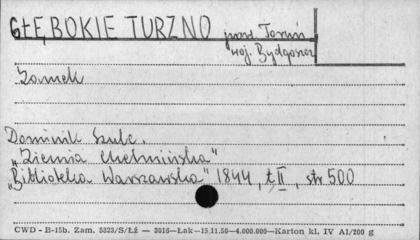 GŁĘBOKIE TURZNO pow. Toruń
woj. Bydgoszcz
Zamek
Dominik Szulc.
„Ziemia chełmińska"
„Biblioteka Warszawska" 1844, t. II, str 500
CWD - B-15b. Zam. 5323/S/Łż — 3016—Łak—15.11.50—4.000.000—Karton kl. IV A1/200 g